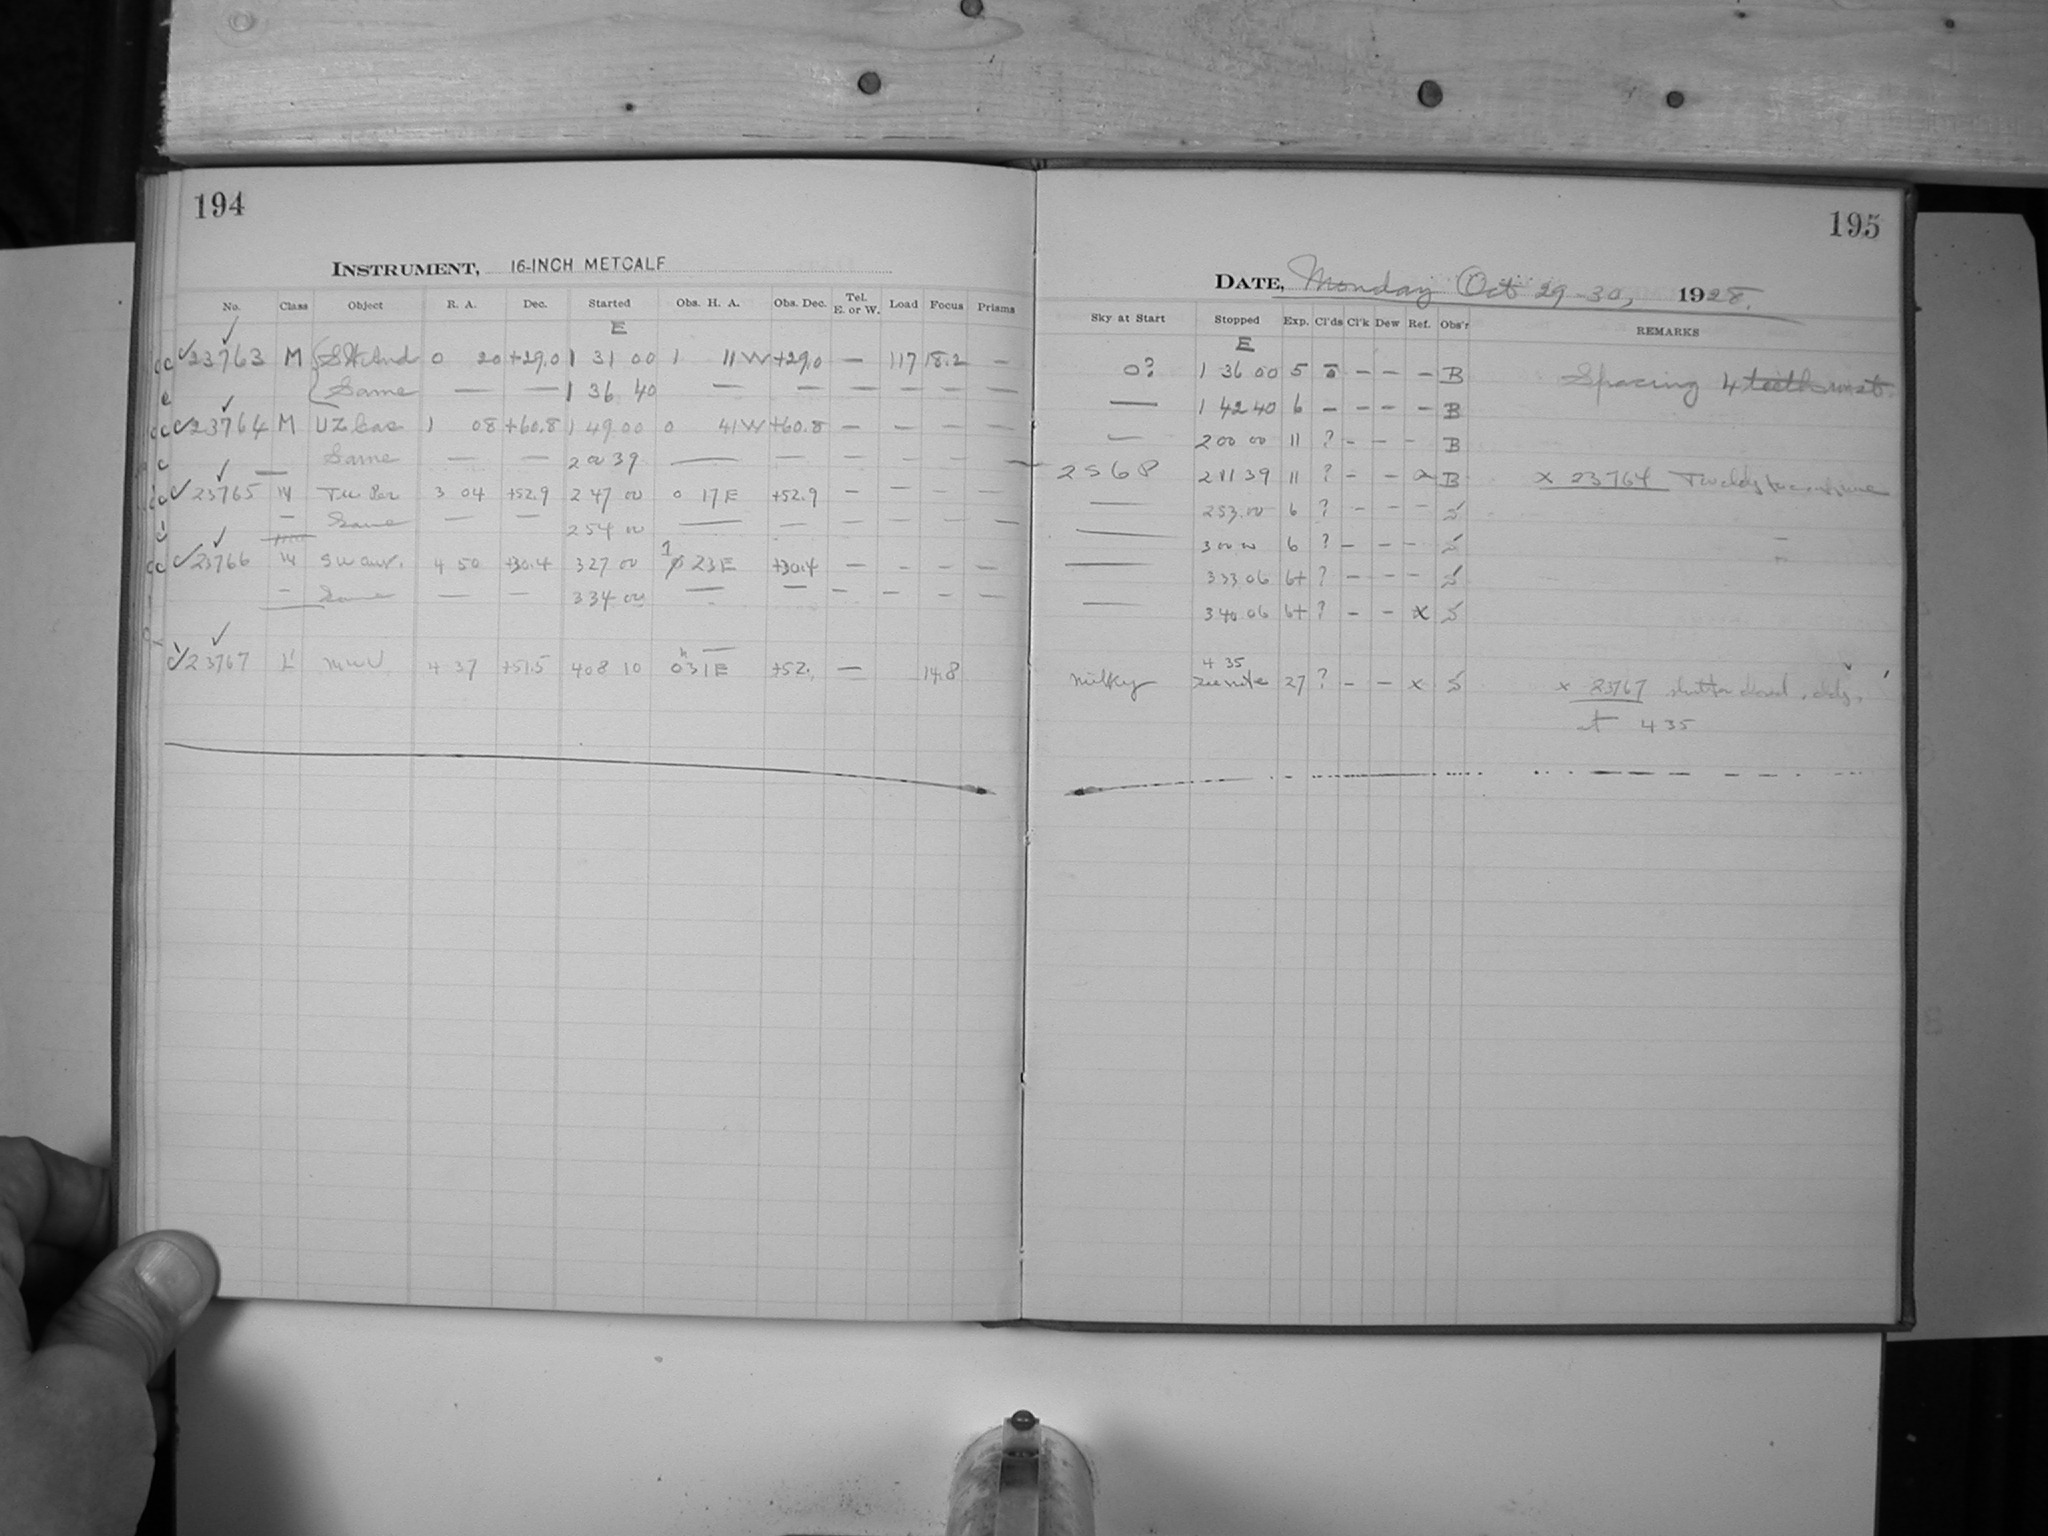 194
INSTRUMENT, 16-INCH METCALF
No. Class Object R. A. Dec. Started Obs. H. A. Obs. Dec. Tel. E. or W. Load Focus Prisms
E
23763 M And 0 20 +29.0 1 31 00 1 11 W +29.0 — 117 18.2 —
Same — — 1 36 40 — — — — — —
23764 M UZ Cas 1 08 +60.8 1 49 00 0 41 W +60.8 — — — —
Same — — 2 00 39 — — — — — —
23765 M TW Per 3 04 +52.9 2 47 00 0 17 E +52.9 — — — —
— Same — — 2 54 00 — — — — — —
23766 M SW Aur. 4 50 +30.4 3 27 00 1 23 E +30.4 — — — —
— Same — — 3 34 00 — — — — — —
23767 4 37 +51.5 4 08 10 0 31 E +52. — 14.8
195
DATE, Monday Oct 29-30, 1928.
Sky at Start Stopped Exp. Cl'ds Cl'k Dew Ref. Obs'r REMARKS
E
0? 1 36 00 5 0 — — — B Spacing 4
— 1 42 40 6 — — — — B
— 2 00 00 11 ? — — — B
2568 2 11 39 11 ? — — B x 23764
— 2 53 00 6 ? — — — S
— 3 00 00 6 ? — — — S
— 3 33 06 6+ ? — — — S
— 3 40 06 6+ ? — — x S
4 35
Milky See note 27 ? — — x S x 23767 shutter closed, cldy,
at 4 35